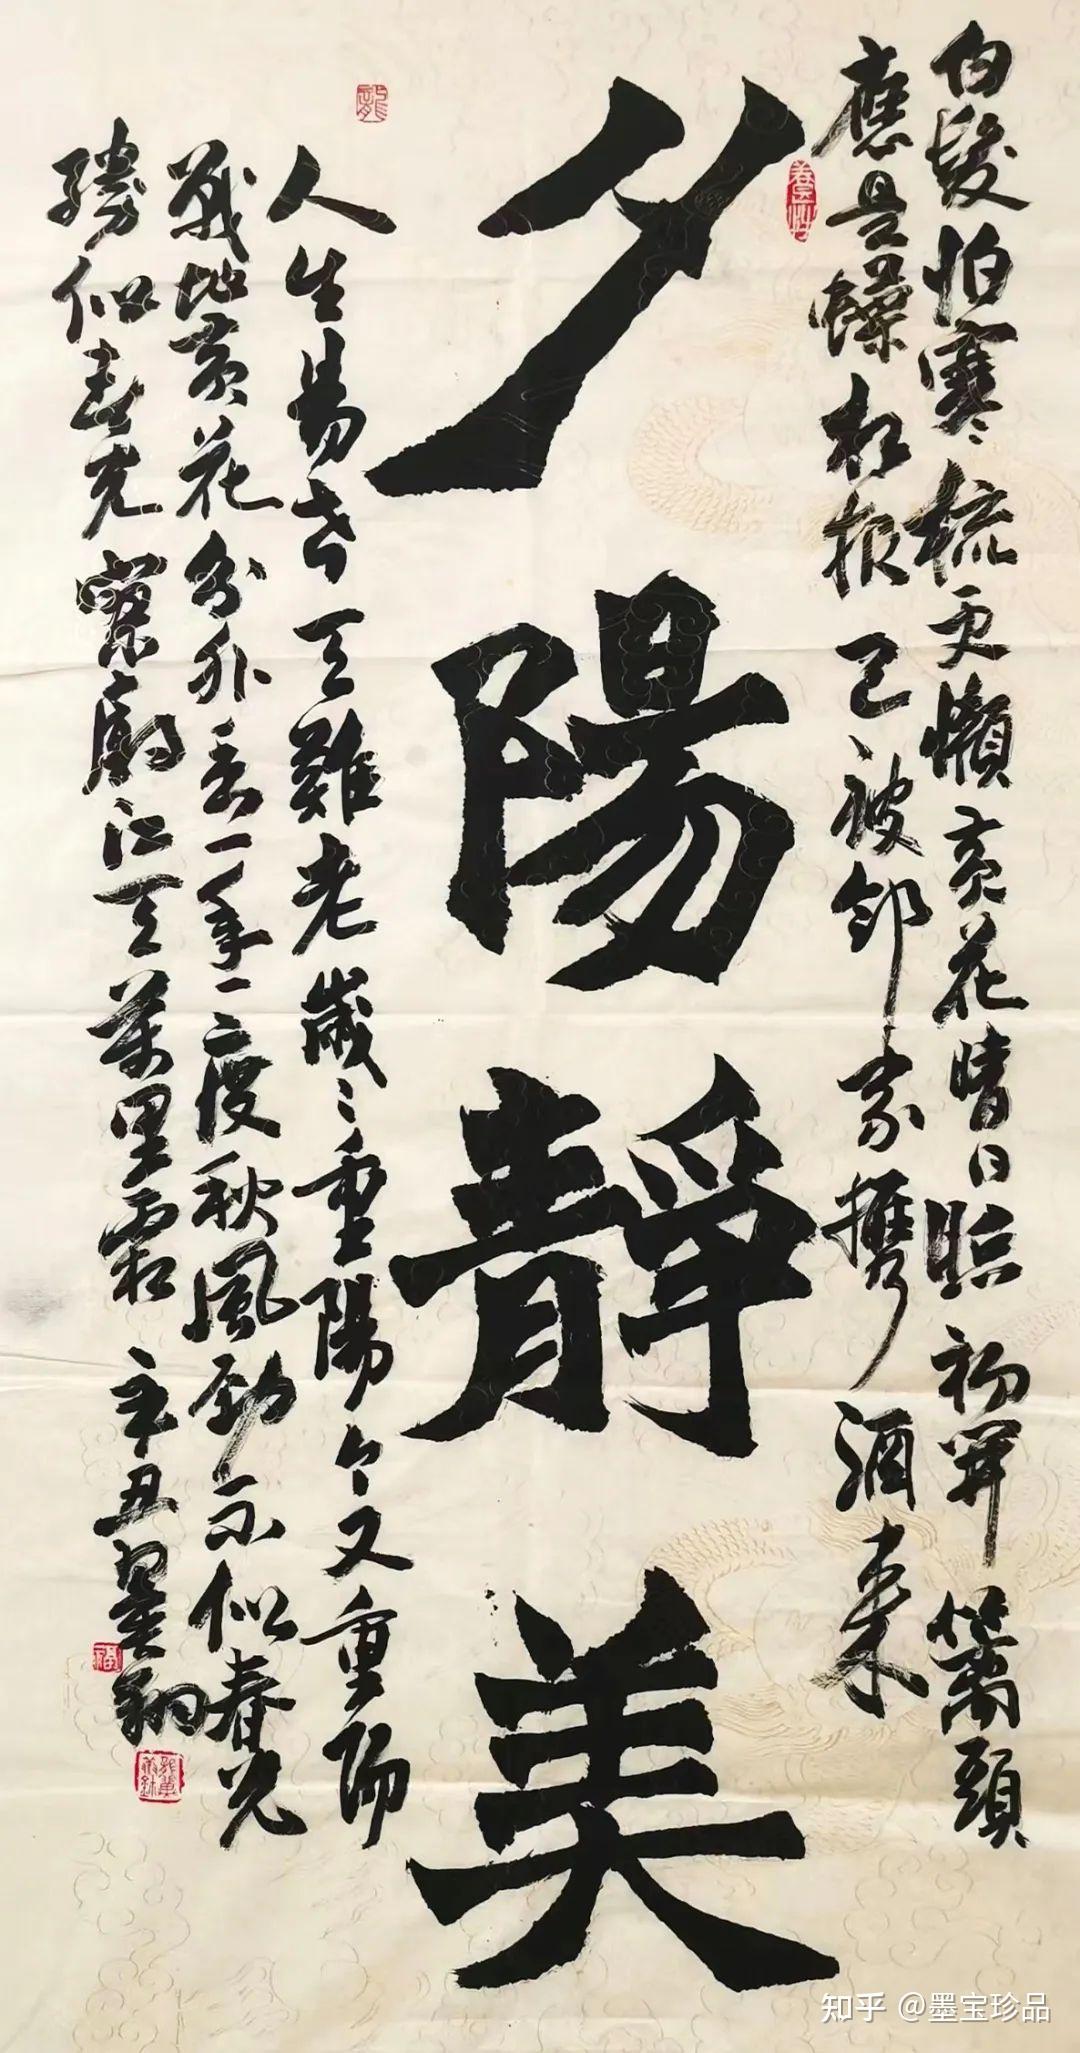 白髮怕寒梳更懶黃花晴日照初開籬頭
應是蝶相報已被鄰家攜酒來
夕陽靜美
人生易老天難老歲〻重陽今又重陽
戰地黃花分外香一年一度秋風勁不似春光
勝似春光寥廓江天萬里霜辛丑墨翔
龍
養性
福
知乎 @墨宝珍品